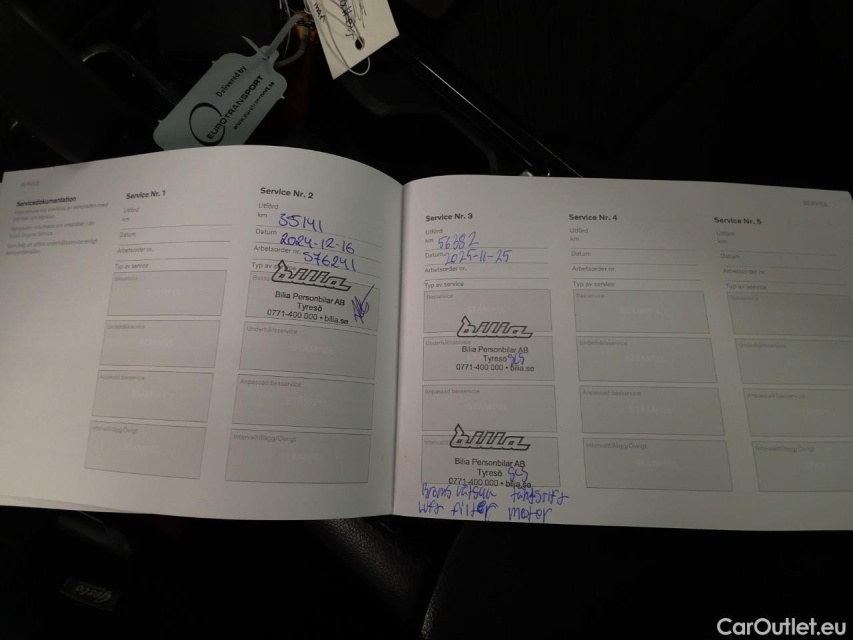 Delivered by
EUROTRANSPORT
SERVICE
Servicedokumentation
Service Nr. 1
Utförd
km
Datum
Arbetsorder nr.
Typ av service
Basservice
Underhållsservice
Anpassad basservice
Intervalltillägg/Övrigt
Service Nr. 2
Utförd
km 35141
Datum 2024-12-16
Arbetsorder nr. 576241
Typ av
bilia
Bilia Personbilar AB
Tyresö
0771-400 000 • bilia.se
Underhållsservice
Anpassad basservice
Intervalltillägg/Övrigt
SERVICE
Service Nr. 3
Utförd
km 56382
Datum 2025-11-25
Arbetsorder nr.
Typ av service
Basservice
bilia
Underhållsservice
Bilia Personbilar AB
Tyresö
0771-400 000 • bilia.se
Anpassad basservice
bilia
Bilia Personbilar AB
Tyresö
0771-400 000 • bilia.se
luft filter motor
Service Nr. 4
Utförd
km
Datum
Arbetsorder nr.
Typ av service
Basservice
Underhållsservice
Anpassad basservice
Intervalltillägg/Övrigt
Service Nr. 5
Utförd
km
Datum
Arbetsorder nr.
Typ av service
Basservice
Underhållsservice
Anpassad basservice
Intervalltillägg/Övrigt
CarOutlet.eu